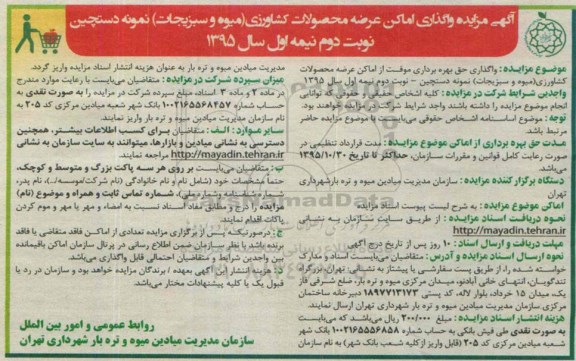 آگهی مزایده واگذاری اماکن عرضه محصولات کشاورزی(میوه و سبزیجات) نمونه دستچین
نوبت دوم نیمه اول سال ۱۳۹۵
موضوع مزایده : واگذاری حق بهره برداری موقت از اماکن عرضه محصولات
کشاورزی(میوه و سبزیجات) نمونه دستچین - نوبت دوم نیمه اول سال ۱۳۹۵
واجدین شرایط شرکت در مزایده : کلیه اشخاص حقیقی و حقوقی که توانایی
انجام موضوع مزایده را داشته باشند واجد شرایط شرکت در مزایده خواهند بود.
توجه : موضوع اساسنامه اشخاص حقوقی می‌بایست با موضوع مزایده حاضر
مرتبط باشد.
مدت حق بهره برداری از اماکن موضوع مزایده : مدت قرارداد تنظیمی در
صورت رعایت کامل قوانین و مقررات سازمان، حداکثر تا تاریخ ۱۳۹۵/۱۰/۳۰
دستگاه برگزار کننده مزایده : سازمان مدیریت میادین میوه و تره بار شهرداری
تهران
اماکن موضوع مزایده : به شرح لیست پیوست اسناد مزایده
نحوه دریافت اسناد مزایده : از طریق سایت سازمان به نشانی
http://mayadin.tehran.ir
مهلت دریافت و ارسال اسناد : ۱۰ روز پس از تاریخ درج آگهی
نحوه ارسال اسناد مزایده و آدرس : متقاضیان می‌بایست اسناد و مدارک
خواسته شده را، از طریق پست سفارشی یا پیشتاز به نشانی: تهران، بزرگراه
تندگویان، انتهای خانی آبادنو، میدان مرکزی میوه و تره بار، ضلع شرقی فاز
یک، میدان ۱۵ خرداد، بلوار لاله، کد پستی ۱۸۹۷۷۱۳۱۷۳ دبیرخانه ساختمان
سازمان مدیریت میادین میوه و تره بار شهرداری تهران ارسال نمایند.
هزینه انتشار اسناد مزایده : مبلغ ۲۰۰/۰۰۰ ریال می‌باشد که می‌بایست
به صورت نقدی طی فیش بانکی به حساب شماره ۱۰۰۲۱۶۵۵۵۶۸۵۸ بانک شهر
شعبه میادین مرکزی کد ۲۰۵ (قابل واریز از کلیه شعب بانک شهر) به نام سازمان
مدیریت میادین میوه و تره بار به عنوان هزینه انتشار اسناد مزایده واریز گردد.
میزان سپرده شرکت در مزایده : متقاضیان می‌بایست با رعایت موارد مندرج
در ماده ۲ و ماده ۳ اسناد، مبلغ سپرده شرکت در مزایده را به صورت نقدی به
حساب شماره ۱۰۰۲۱۶۵۵۶۸۴۵۷ بانک شهر شعبه میادین مرکزی کد ۲۰۵ به
نام سازمان مدیریت میادین میوه و تره بار واریز نمایند.
سایر موارد : الف - متقاضیان برای کسب اطلاعات بیشتر، همچنین
دسترسی به نشانی میادین و بازارها، میتوانند به سایت سازمان به نشانی
http://mayadin.tehran.ir مراجعه نمایند.
ب: متقاضیان می‌بایست بر روی هر سه پاکت بزرگ و متوسط و کوچک،
حتما مشخصات خود (شامل نام و نام خانوادگی (نام شرکت/موسسه/..)، نام پدر،
شماره تماس ثابت و همراه و موضوع (نام)
مزایده را درج و مطابق مفاد اسناد نسبت به امضاء و مهر یا مهر و موم کردن
پاکات اقدام نمایند.
ج: درصورتیکه پس از برگزاری مزایده تعدادی از اماکن فاقد متقاضی یا فاقد
برنده باشد با نظر سازمان ضمن اطلاع رسانی در پرتال سازمان اماکن باقیمانده
بین واجدین شرایط و متقاضیان احتمالی قابل واگذاری می‌باشد.
آگهی بعهده / برندگان مزایده خواهد بود و سازمان در رد یا
قبول یک یا کلیه پیشنهادات مختار می‌باشد.
روابط عمومی و امور بین الملل
سازمان مدیریت میادین میوه و تره بار شهرداری تهران